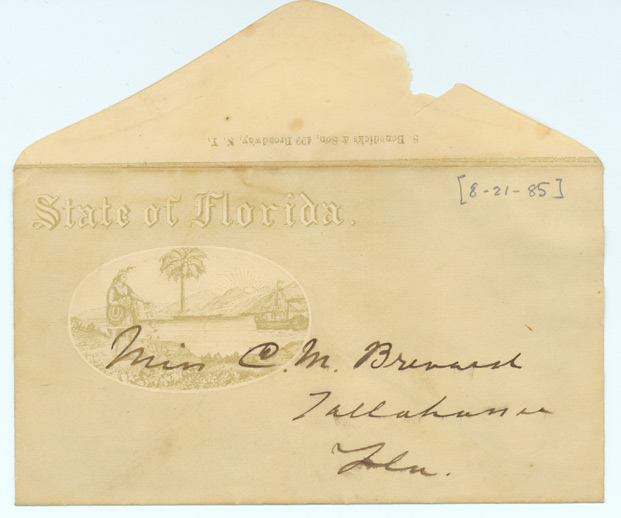 S. Benedicks & Son, 499 Broadway, N. Y.
[8-21-85]
State of Florida.
Miss C. M. Brevard
Tallahassee
Fla.